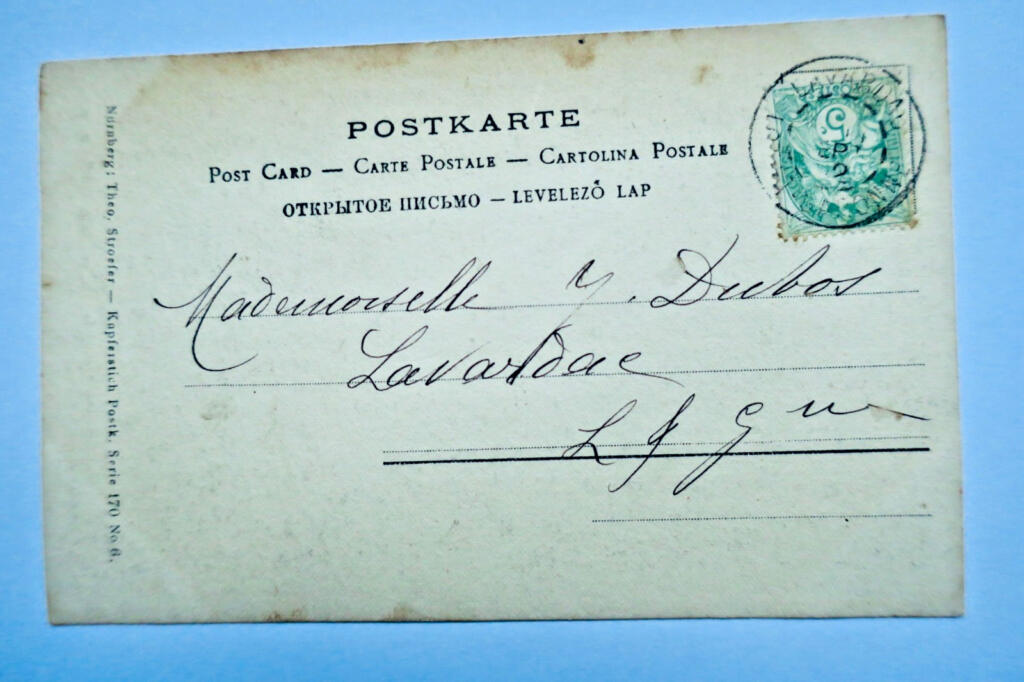 POSTKARTE
POST CARD — CARTE POSTALE — CARTOLINA POSTALE
ОТКРЫТОЕ ПИСЬМО — LEVELEZŐ LAP
5
LAVARDAC
Mademoiselle Y. Dubos
Lavardac
L & G ne
Nürnberg: Theo. Stroefer — Kupferstich Postk. Serie 170 No 6.